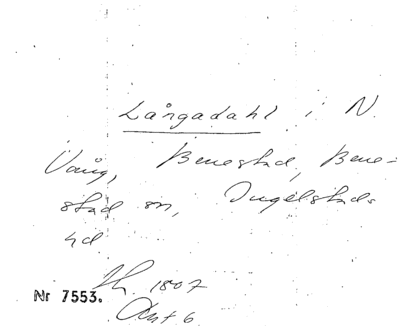 Långadahl i N.
Vång, Benestad, Bene-
stad sn, Ingelstads
hd.
Th. 1807
Akt 6
Nr 7553.